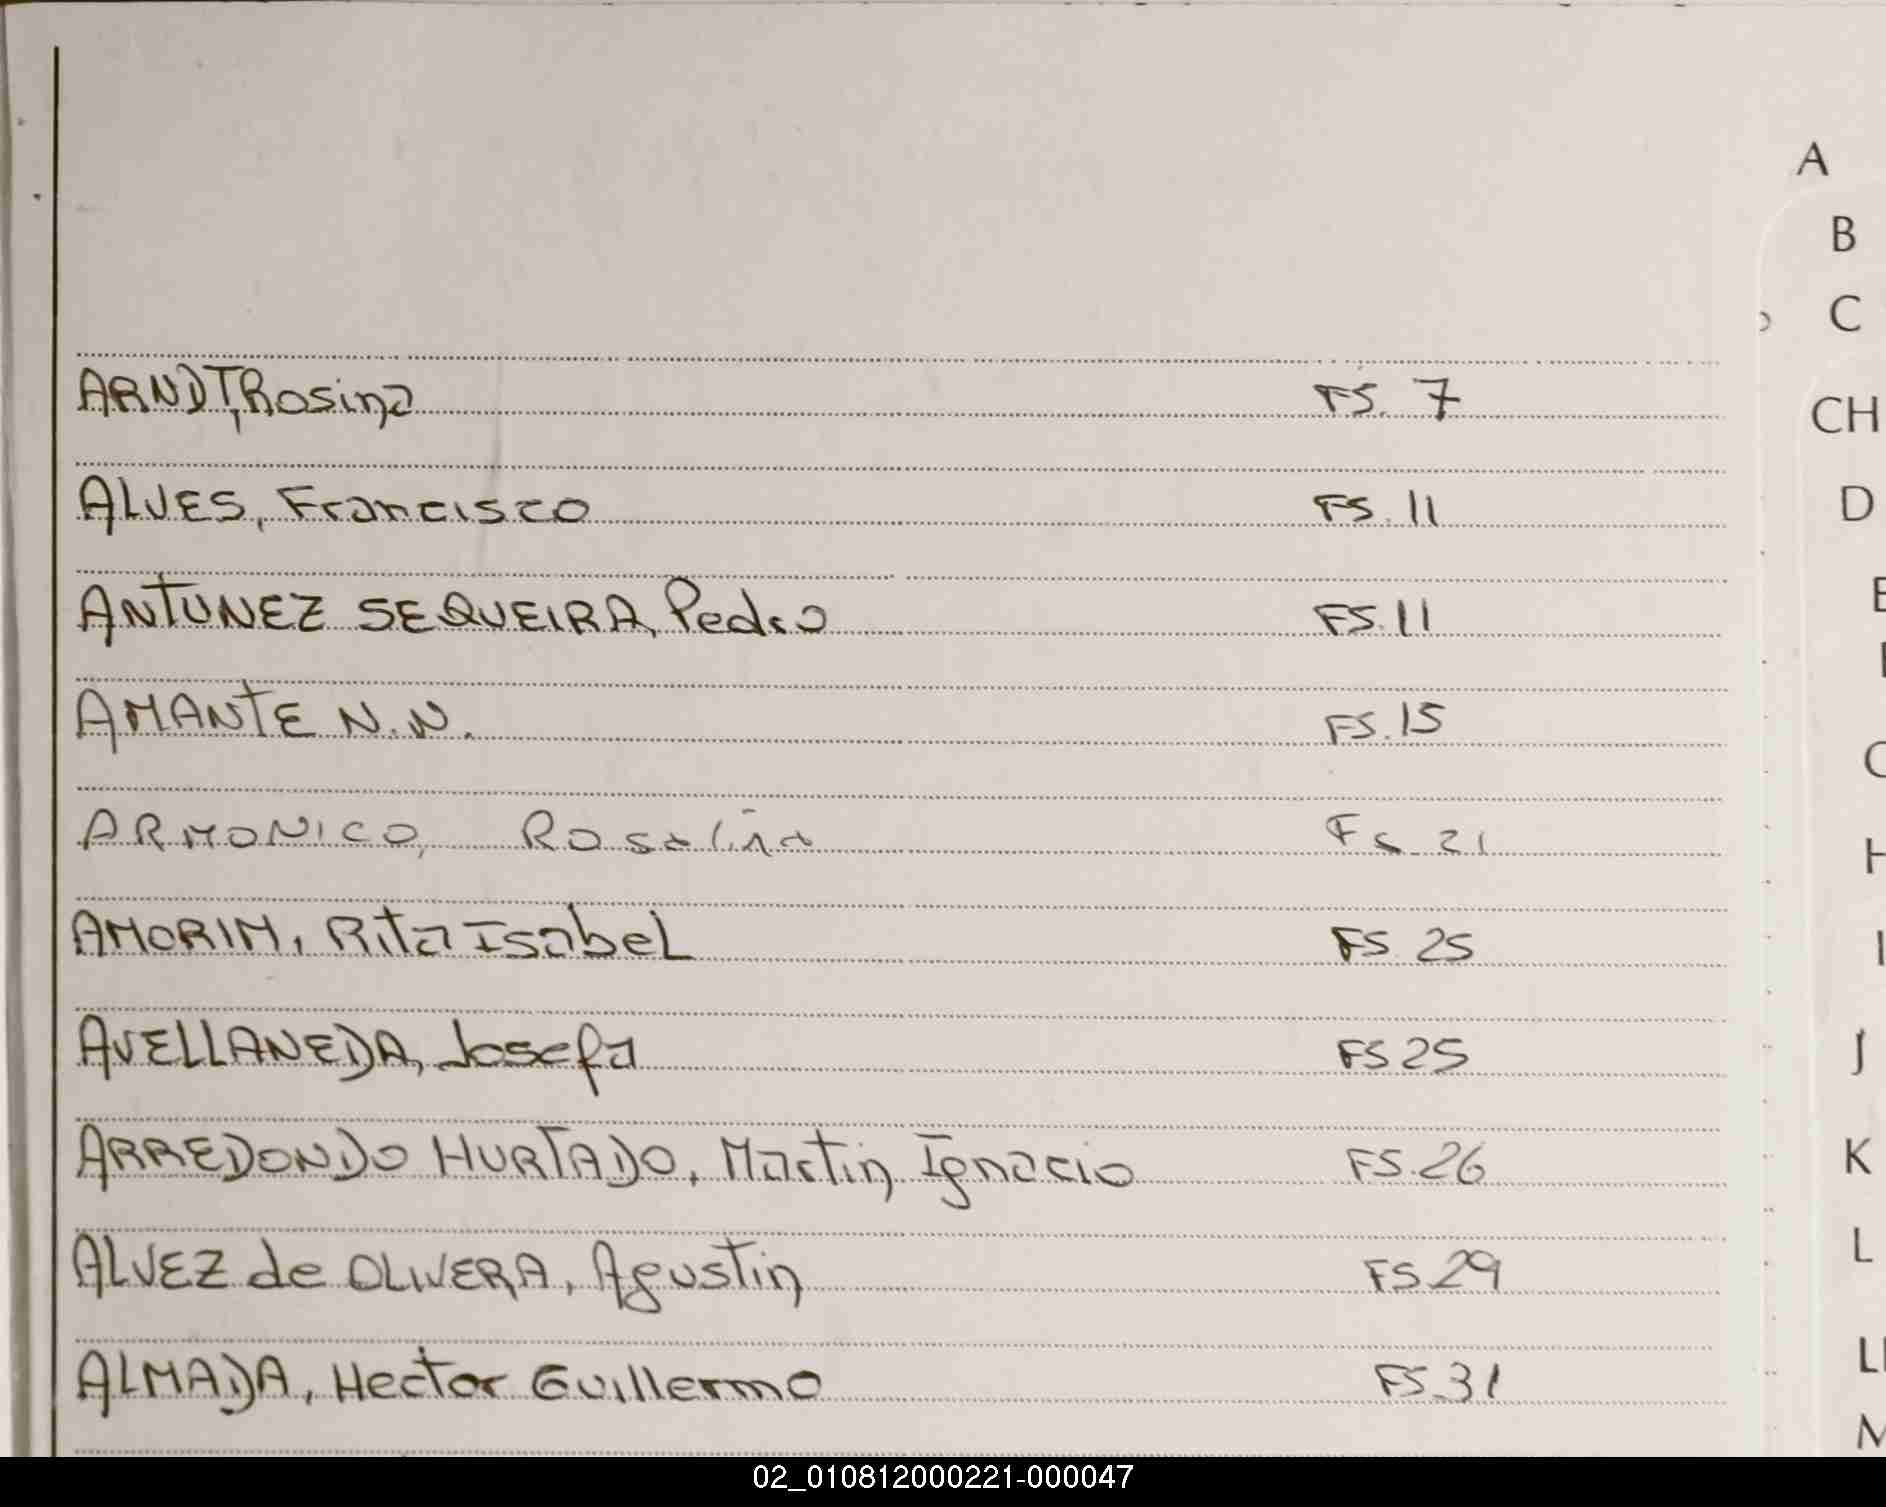 ARNDT, Rosina FS. 7
ALVES, Francisco FS. 11
ANTUNEZ SEQUEIRA, Pedro FS. 11
AMANTE N.N. FS. 15
ARMONICO, Rosalina Fs. 21
AMORIM, Rita Isabel FS 25
AVELLANEDA, Josefa FS 25
ARREDONDO HURTADO, Martin Ignacio FS. 26
ALVEZ de OLIVERA, Agustin FS. 29
ALMADA, Hector Guillermo FS. 31
A
B
C
CH
D
H
I
J
K
L
02_010812000221-000047